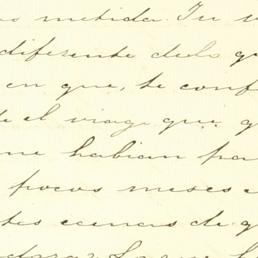 metida. Tu
diferente delo q
en que, te conf
el viage que q
me habian pa
pocos meses
escenas de g